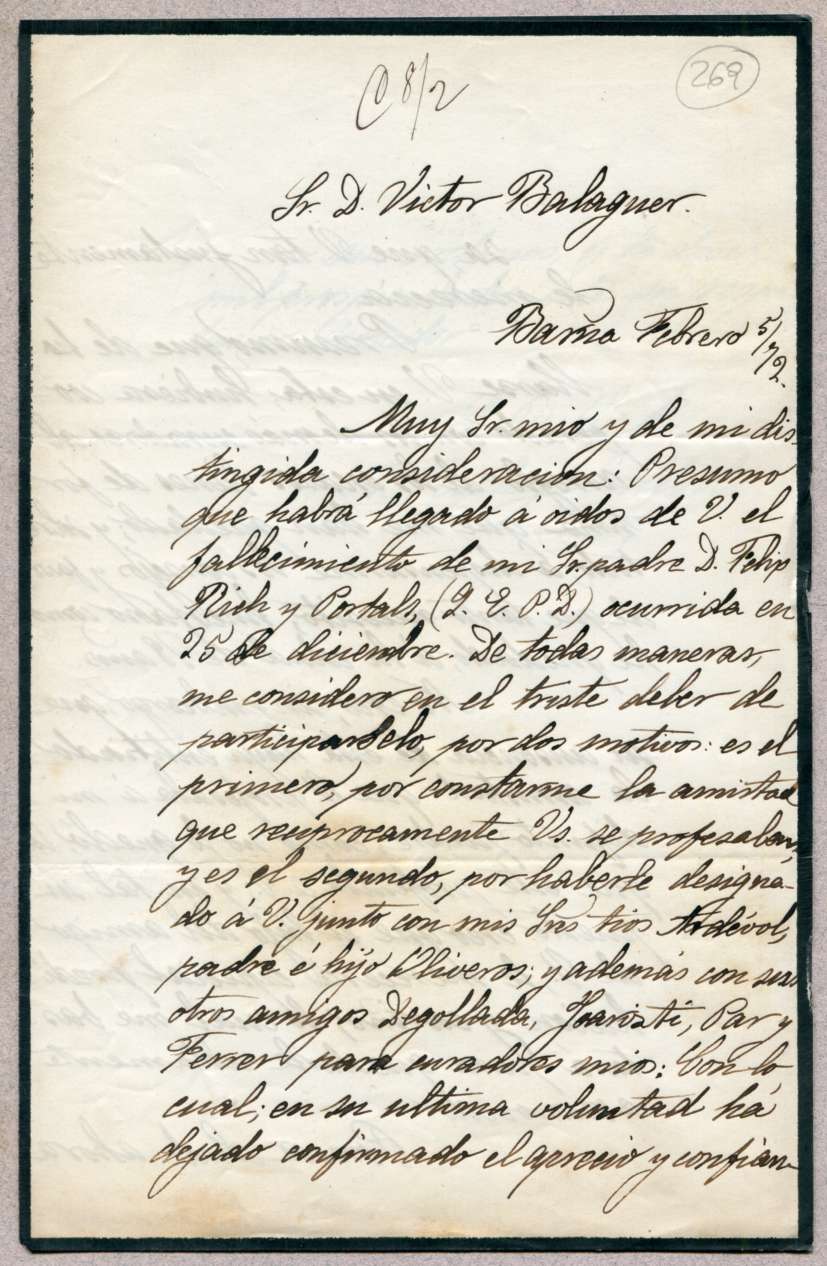 269
C 8/2
Sr. D. Victor Balaguer.
Barna Febrero 5/72.
Muy Sr. mio y de mi dis-
tingida consideracion: Presumo
que habrá llegado á oidos de V. el
fallecimiento de mi Sr. padre D. Felip
Rich y Portals, (Q. E. P. D.) ocurrida en
25 de diciembre. De todas maneras,
me considero en el triste deber de
participarselo, por dos motivos: es el
primero, por constarme la amistad
que reciprocamente Vs. se profesaban,
y es el segundo, por haberle designa-
do á V. junto con mis Sres tios Ardévol,
padre é hijo Oliveros; y además con sus
otros amigos Degollada, Par y
Ferrer para curadores mios: Con lo
cual; en su ultima voluntad há
dejado confirmado el aprecio y confian-